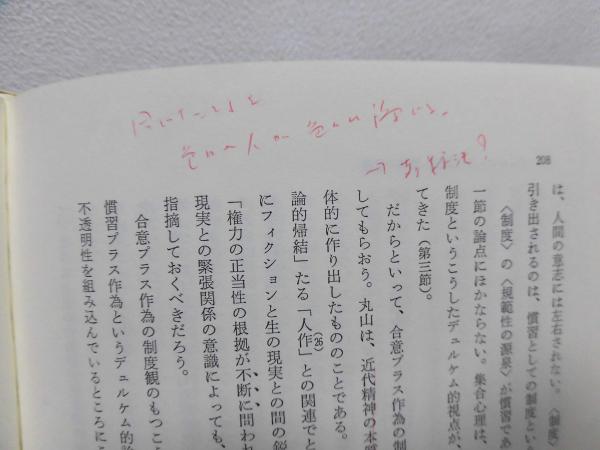 208
は、人間の意志には左右されない。〈制度〉
引き出されるのは、慣習としての制度とい
〈制度〉の〈規範性の源泉〉が慣習であ
一節の論点にほかならない。集合心理は、
制度というこうしたデュルケム的視点が、
てきた(第三節)。
だからといって、合意プラス作為の制
してもらおう。丸山は、近代精神の本質
体的に作り出したもののことである。
論的帰結」たる「人作」との関連でと
(26)
にフィクションと生の現実との間の鋭
「権力の正当性の根拠が不断に問われ
現実との緊張関係の意識によっても、
指摘しておくべきだろう。
合意プラス作為の制度観のもつこ
慣習プラス作為というデュルケム的
不透明性を組み込んでいるところに